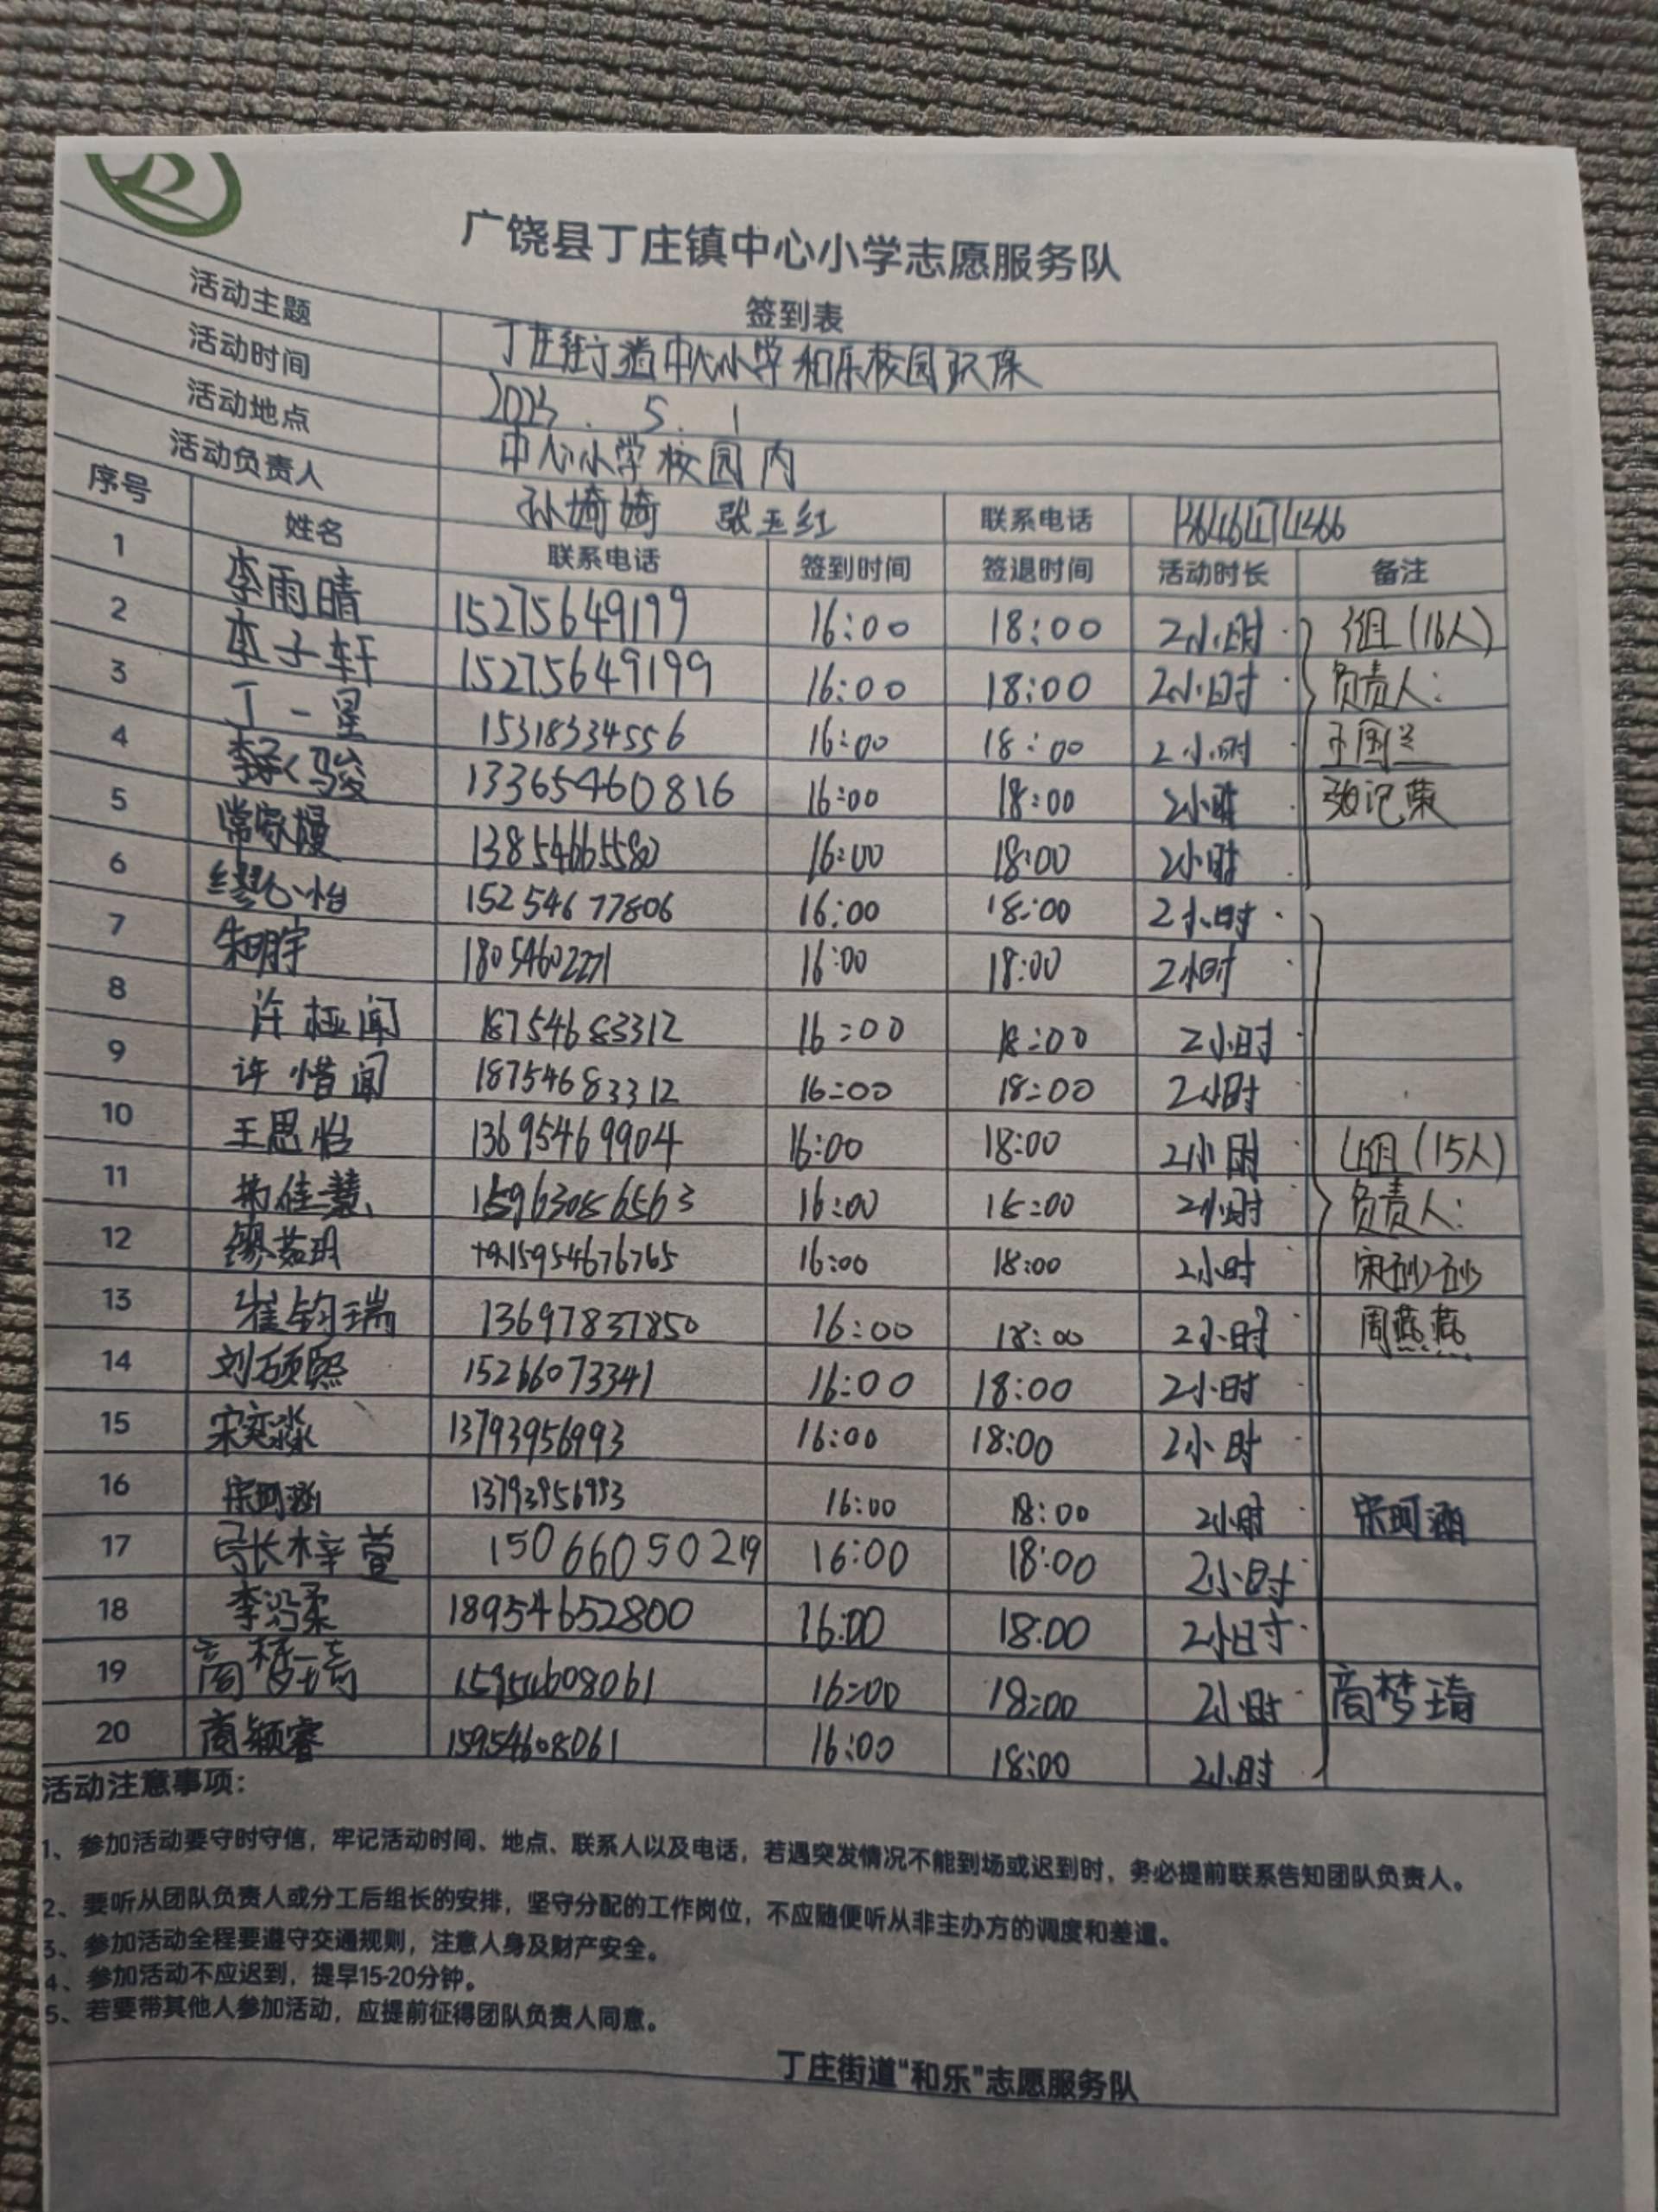 广饶县丁庄镇中心小学志愿服务队
签到表
活动主题 丁庄街道中心小学和乐校园环保
活动时间 2023.5.1
活动地点 中心小学校园内
活动负责人 孙婍婍 张玉红 联系电话
序号 姓名 联系电话 签到时间 签退时间 活动时长 备注
1 李雨晴 15275649199 16:00 18:00 2小时 3组(16人)
2 李子轩 15275649199 16:00 18:00 2小时 负责人:
3 丁一星 15318334556 16:00 18:00 2小时 王国兰
4 13365460816 16:00 18:00 2小时 张记荣
5 常家嫚 13854665580 16:00 18:00 2小时
6 缪心怡 15254677806 16:00 18:00 2小时
7 朱明宇 18054602271 16:00 18:00 2小时
8 许桠闻 18754683312 16:00 18:00 2小时
9 许惜闻 18754683312 16:00 18:00 2小时
10 王思怡 13695469904 16:00 18:00 2小时 4组(15人)
11 16:00 18:00 2小时 负责人:
12 缪茹玥 15954676765 16:00 18:00 2小时 宋砂砂
13 崔钧瑞 13697837850 16:00 18:00 2小时 周燕燕
14 刘硕熙 15266073341 16:00 18:00 2小时
15 宋奕淼 13793956993 16:00 18:00 2小时
16 宋珂涵 13793956993 16:00 18:00 2小时 宋珂涵
17 张梓萱 15066050219 16:00 18:00 2小时
18 李沿柔 18954652800 16:00 18:00 2小时
19 商梦琦 15954608061 16:00 18:00 2小时 商梦琦
20 商颖睿 15954608061 16:00 18:00 2小时
活动注意事项:
1、参加活动要守时守信，牢记活动时间、地点、联系人以及电话，若遇突发情况不能到场或迟到时，务必提前联系告知团队负责人。
2、要听从团队负责人或分工后组长的安排，坚守分配的工作岗位，不应随便听从非主办方的调度和差遣。
3、参加活动全程要遵守交通规则，注意人身及财产安全。
4、参加活动不应迟到，提早15-20分钟。
5、若要带其他人参加活动，应提前征得团队负责人同意。
丁庄街道“和乐”志愿服务队